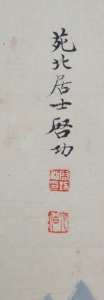 苑北居士啓功